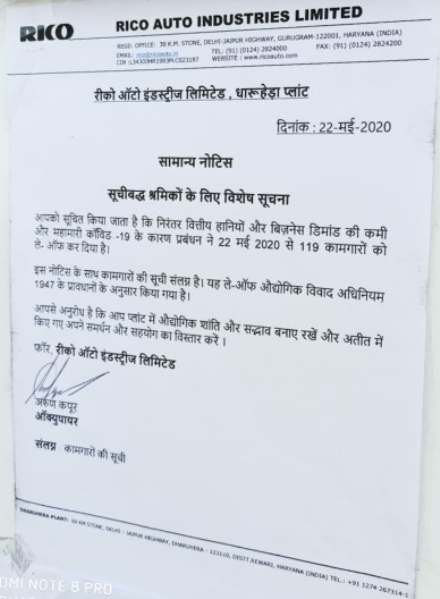 RICO
RICO AUTO INDUSTRIES LIMITED
REGD. OFFICE: 38 K.M. STONE, DELHI-JAIPUR HIGHWAY, GURUGRAM-122001, HARYANA (INDIA)
EMAIL: rico@ricoauto.in TEL: (91) (0124) 2824000 FAX: (91) (0124) 2824200
CIN :L34300HR1983PLC023187 WEBSITE : www.ricoauto.com
रीको ऑटो इंडस्ट्रीज लिमिटेड , धारूहेड़ा प्लांट
दिनांक : 22-मई-2020
सामान्य नोटिस
सूचीबद्ध श्रमिकों के लिए विशेष सूचना
आपको सूचित किया जाता है कि निरंतर वित्तीय हानियों और बिज़नेस डिमांड की कमी
और महामारी कोविड -19 के कारण प्रबंधन ने 22 मई 2020 से 119 कामगारों को
ले- ऑफ कर दिया है।
इस नोटिस के साथ कामगारों की सूची संलग्न है। यह ले-ऑफ औद्योगिक विवाद अधिनियम
1947 के प्रावधानों के अनुसार किया गया है।
आपसे अनुरोध है कि आप प्लांट में औद्योगिक शांति और सद्भाव बनाए रखें और अतीत में
किए गए अपने समर्थन और सहयोग का विस्तार करें ।
फॉर, रीको ऑटो इंडस्ट्रीज लिमिटेड
अरुण कपूर
ऑक्युपायर
संलग्न : कामगारों की सूची
DHARUHERA PLANT: 69 KM STONE, DELHI - JAIPUR HIGHWAY, DHARUHERA - 123110, DISTT.REWARI, HARYANA (INDIA) TEL.: +91 1274 267314-1
DMI NOTE 8 PRO